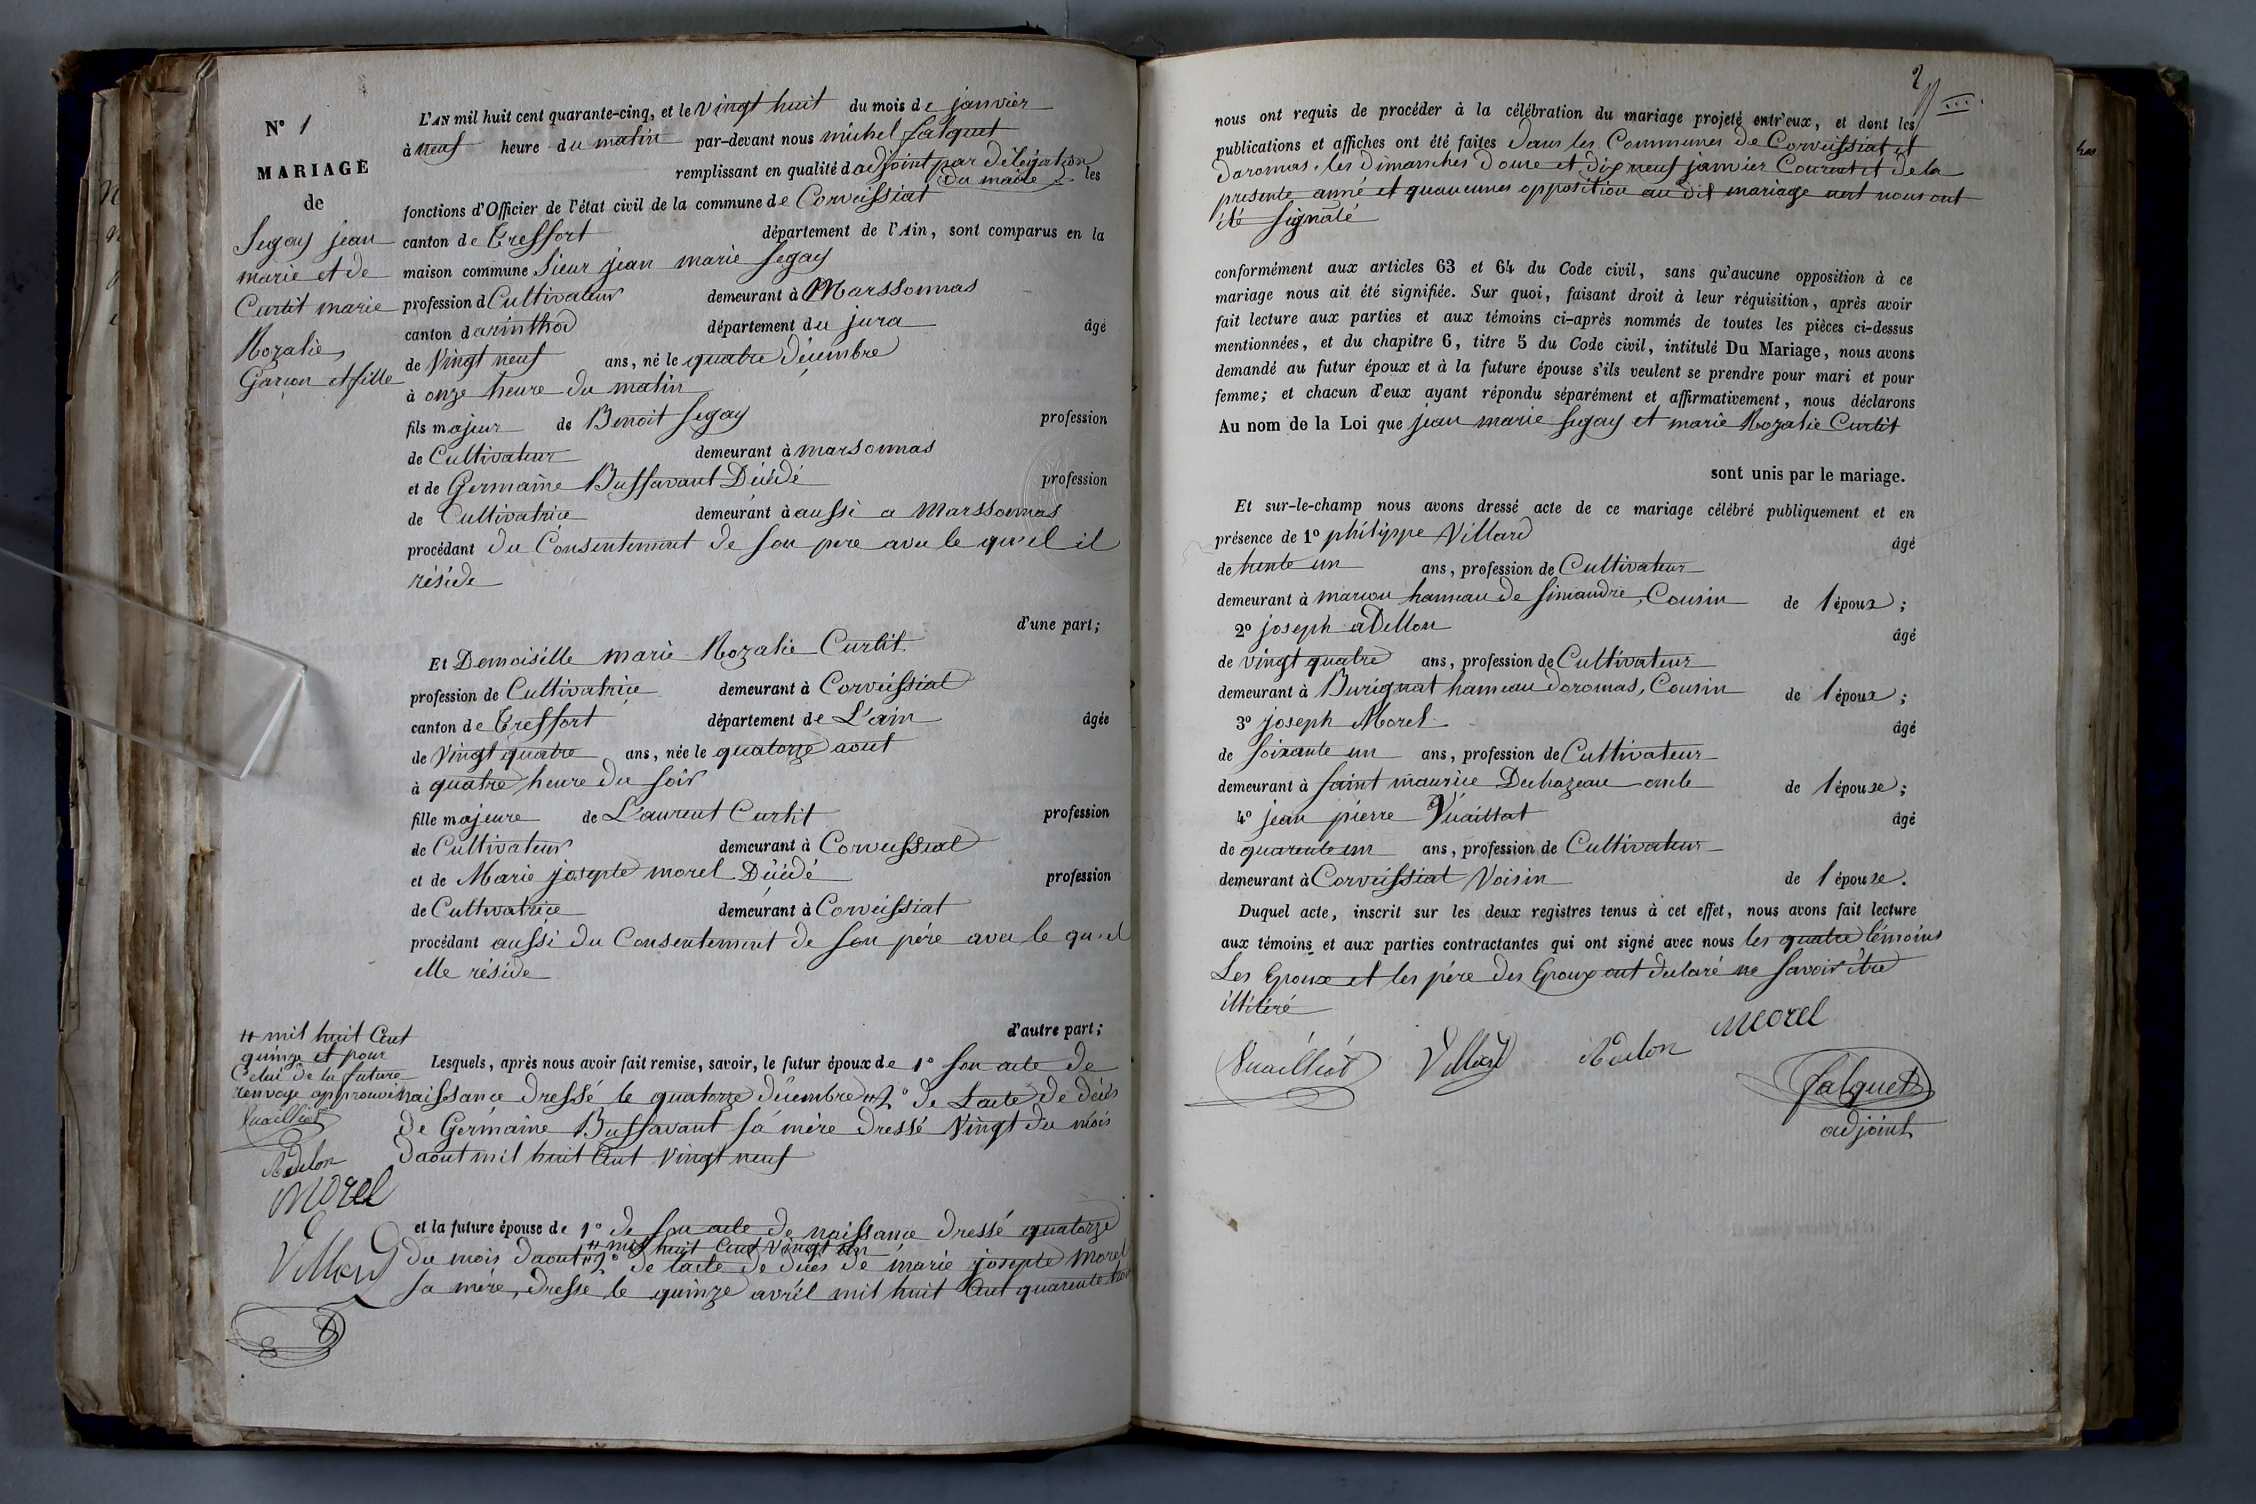 N° 1
MARIAGE
de
Segay jean
marie et de
Curtit marie
Rozalie,
Garcon et fille
L'AN mil huit cent quarante-cinq, et le Vingt huit du mois de janvier
à neuf heure du matin par-devant nous michel falquet
remplissant en qualité d adjoint par délégation
du maire les
fonctions d'Officier de l'état civil de la commune de Corveissiat
canton de Treffort département de l'Ain, sont comparus en la
maison commune Sieur jean marie Segay
profession d Cultivateur demeurant à Marssonnas
canton d arinthod département du jura âgé
de Vingt neuf ans, né le quatre Décembre
à onze heure du matin
fils majeur de Benoit Segay profession
de Cultivateur demeurant à marsonnas
et de Germaine Buffavant Décédé profession
de Cultivatrice demeurant à aussi a Marssonnas
procédant du Consentement de son pere avec le quel il
réside
d'une part;
Et Demoiselle marie Rozalie Curtit
profession de Cultivatrice demeurant à Corveissiat
canton de Treffort département de L'ain âgée
de Vingt quatre ans, née le quatorze aout
à quatre heure du soir
fille majeure de L'aurent Curtit profession
de Cultivateur demeurant à Corveissiat
et de Marie josepte morel Décédé profession
de Cultivatrice demeurant à Corveissiat
procédant aussi du Consentement de son pére avec le quel
elle réside
d'autre part;
# mil huit Cent
quinze et pour
Celui de la future
renvoye approuvé
Vuailliat
Adelon
Morel
Villard
Lesquels, après nous avoir fait remise, savoir, le futur époux de 1° son acte de
naissance dressé le quatorze décembre # 2° de Lacte de décés
de Germaine Buffavant sa mère dressé Vingt du mois
daout mil huit Cent Vingt neuf
et la future épouse de 1° de son acte de naissance dressé quatorze
# mil huit Cent Vingt un
du mois daout # 2° de lacte de décés de marie josepte Morel
sa mère, dresse le quinze avril mil huit Cent quarente
2
nous ont requis de procéder à la célébration du mariage projeté entr'eux, et dont les
publications et affiches ont été faites dans les Communes de Corveissiat et
daromas, les Dimanches Douze et dix neuf janvier Courant et de la
presente anné et quaucunes opposition au dit mariage nont nous ont
été signalé
conformément aux articles 63 et 64 du Code civil, sans qu'aucune opposition à ce
mariage nous ait été signifiée. Sur quoi, faisant droit à leur réquisition, après avoir
fait lecture aux parties et aux témoins ci-après nommés de toutes les pièces ci-dessus
mentionnées, et du chapitre 6, titre 5 du Code civil, intitulé Du Mariage, nous avons
demandé au futur époux et à la future épouse s'ils veulent se prendre pour mari et pour
femme; et chacun d'eux ayant répondu séparément et affirmativement, nous déclarons
Au nom de la Loi que jean marie Segay et marie Rozalie Curtit
sont unis par le mariage.
Et sur-le-champ nous avons dressé acte de ce mariage célébré publiquement et en
présence de 1° philippe Villard âgé
de trente un ans, profession de Cultivateur
demeurant à marcou hameau de simandre, Cousin de l époux;
2° joseph aDellon âgé
de vingt quatre ans, profession de Cultivateur
demeurant à Burignat hameau doromas, Cousin de l époux;
3° joseph Morel âgé
de soixante un ans, profession de Cultivateur
demeurant à saint maurice Dechazeau oncle de l épouse;
4° jean pierre Vuaillat âgé
de quarente un ans, profession de Cultivateur
demeurant à Corveissiat Voisin de l épouse.
Duquel acte, inscrit sur les deux registres tenus à cet effet, nous avons fait lecture
aux témoins et aux parties contractantes qui ont signé avec nous les quatre témoins
Les Epoux et les pére des Epoux ont declaré ne savoir être
illitéré
Vuailliat Villard Adelon Morel
falquet
adjoint